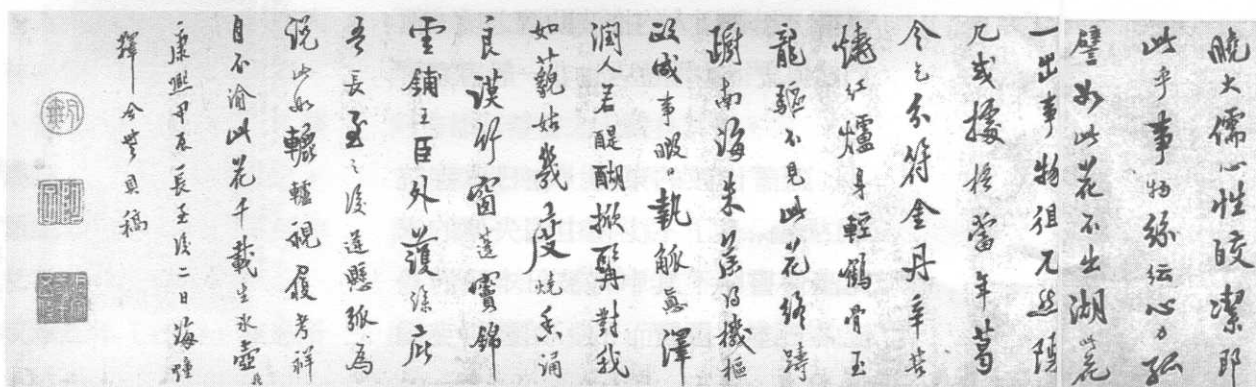 晚大儒心性皎潔即
此乎事物紛紜心乃孤
譬如此花不出湖此花
一出事物徂兀然隤
几或據梧當年葛
令乞分符金丹辛苦
燒紅爐身輕鶴骨玉
龍驅不見此花終躊
躕南海朱深得機樞
政成事暇執觚藻澤
潤人若醍醐掀髯對我
如藐姑幾度燒香誦
良謨竹窗蓮實錦
雲鋪王臣外護徐庇
吾長至之後蓬懸弧為
說此如轆轤視履考祥
自不渝此花千載生冰壺
康熙甲辰長至後二日海幢
釋今無具稿